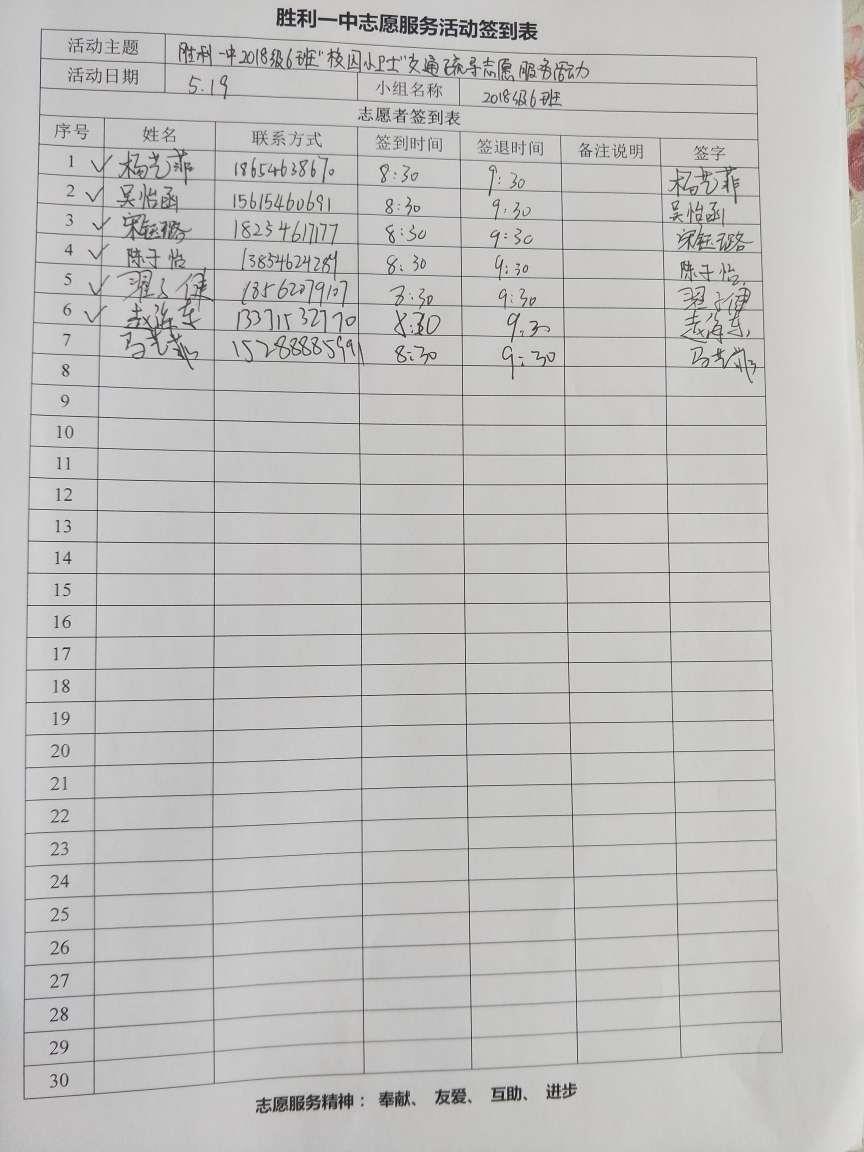 胜利一中志愿服务活动签到表
活动主题 胜利一中2018级6班"校园小卫士"交通疏导志愿服务活动
活动日期 5.19 小组名称 2018级6班
志愿者签到表
序号 姓名 联系方式 签到时间 签退时间 备注说明 签字
1 ✓ 杨艺菲 18654638670 8:30 9:30 杨艺菲
2 ✓ 吴怡函 15615460691 8:30 9.30 吴怡函
3 ✓ 宋钰璐 18254617177 8:30 9:30 宋钰璐
4 ✓ 陈子怡 13854624289 8:30 9:30 陈子怡
5 ✓ 翟子健 13562079107 8:30 9:30 翟子健
6 ✓ 赵海东 13371532770 8:30 9.30 赵海东
7 马艺菲 15288885991 8:30 9:30 马艺菲
8
9
10
11
12
13
14
15
16
17
18
19
20
21
22
23
24
25
26
27
28
29
30
志愿服务精神：奉献、友爱、互助、进步